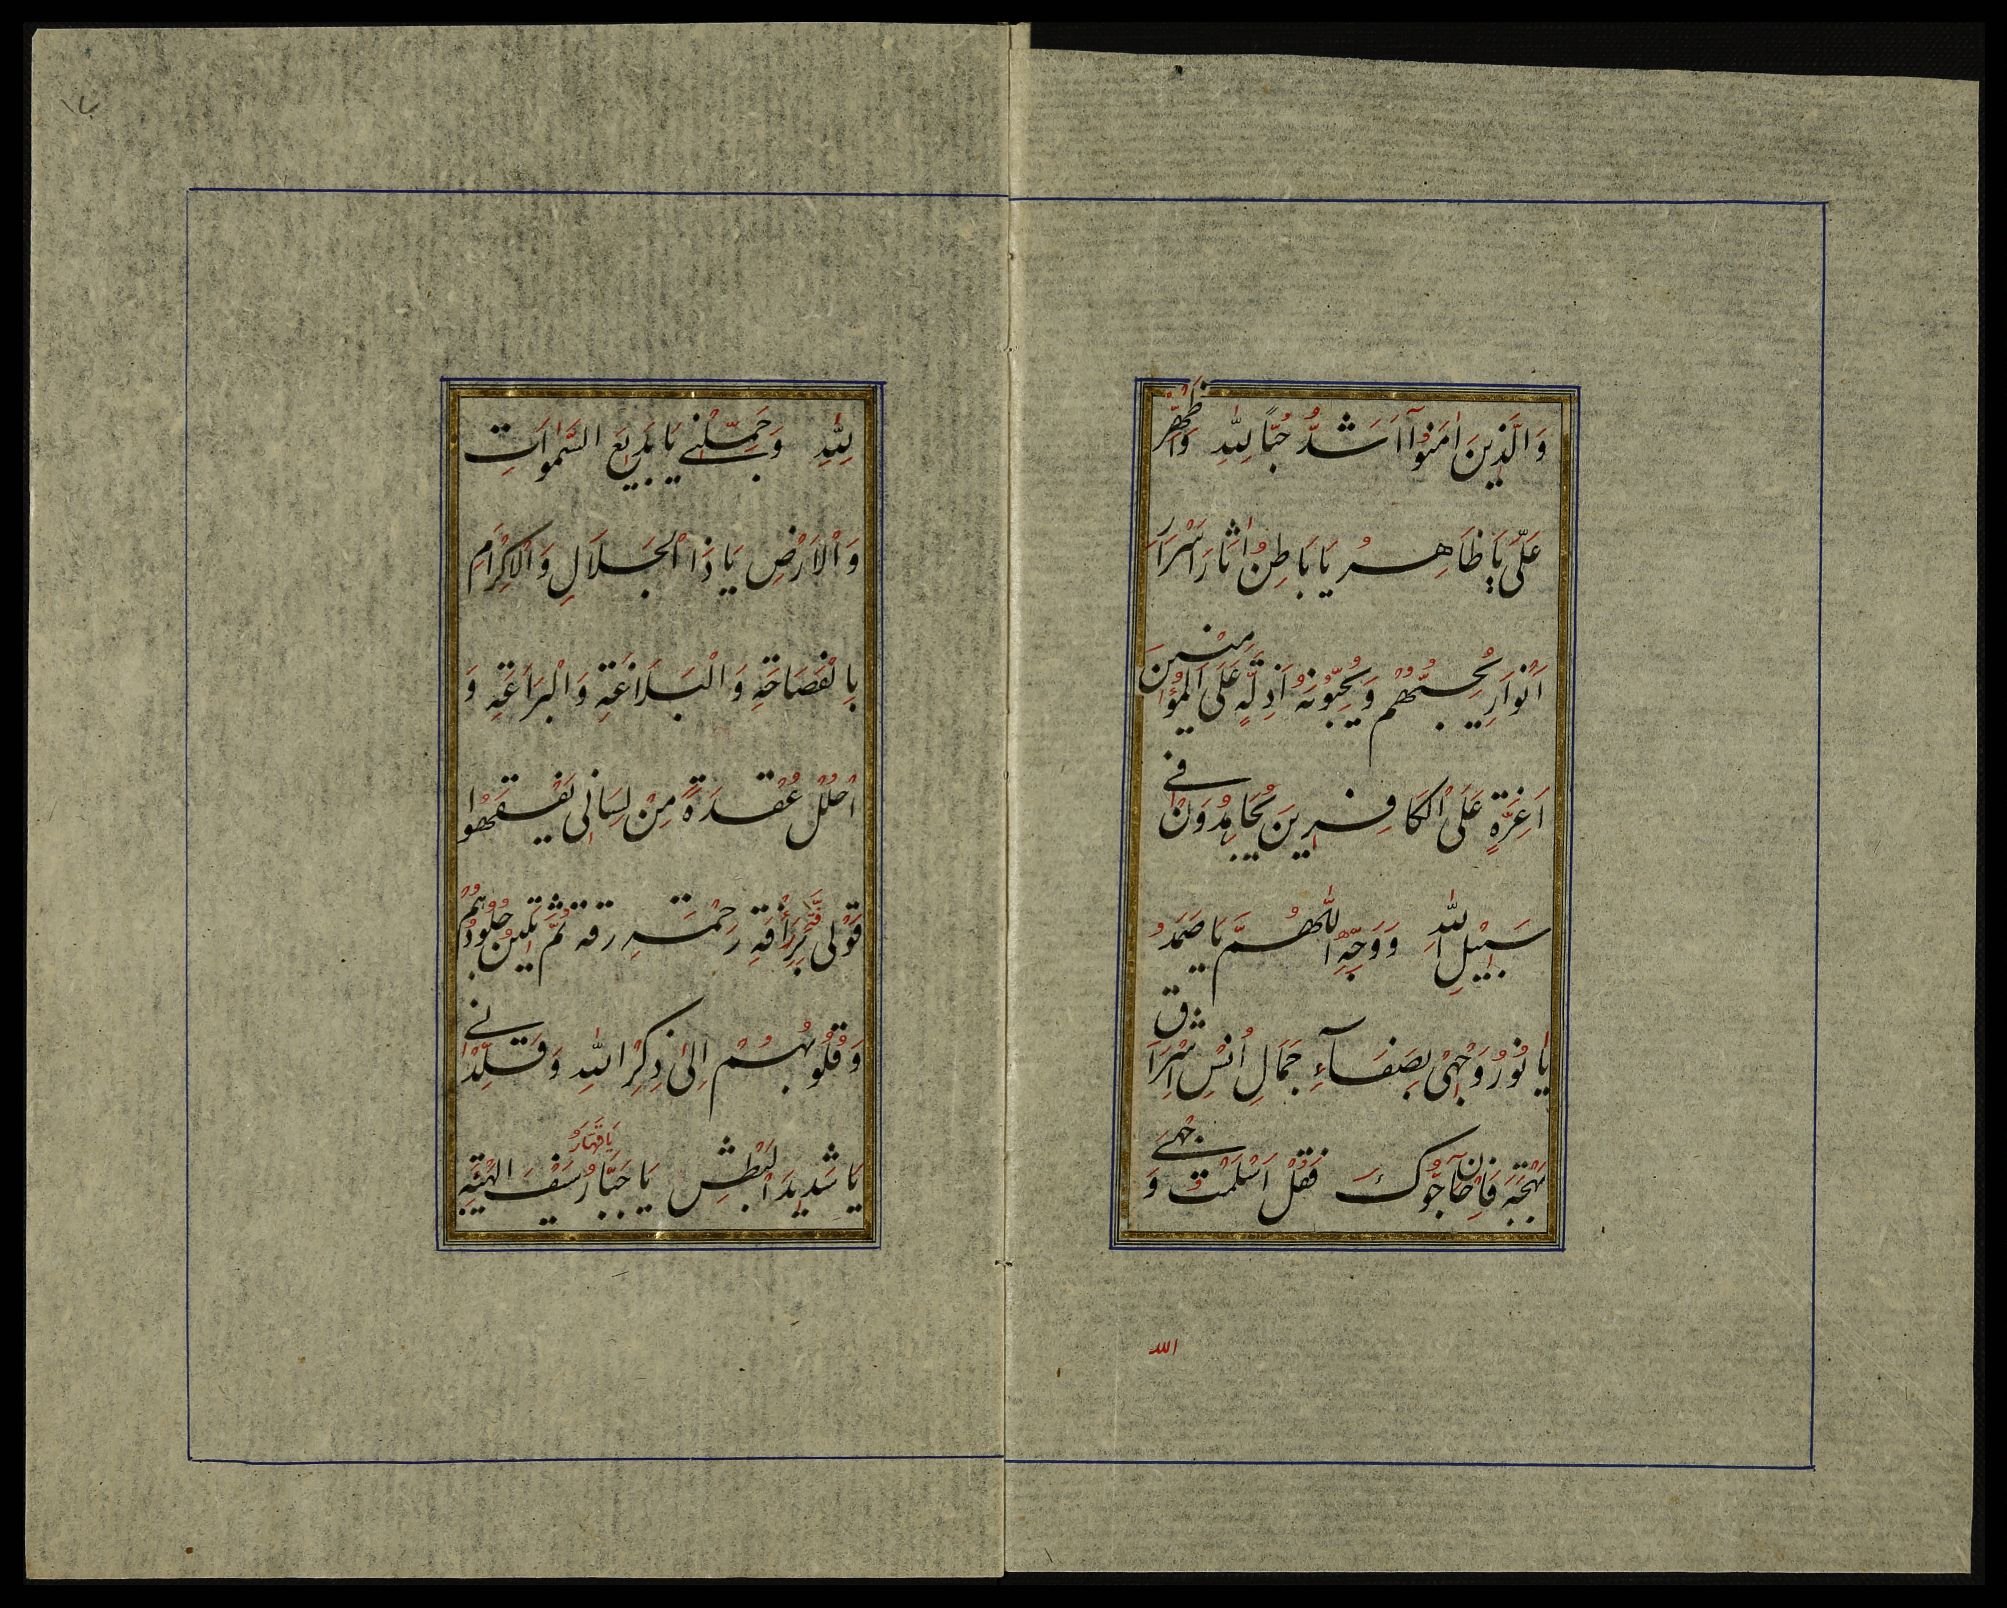 وَالَّذِينَ اٰمَنُوآ اَشَدُّ حُبًّا لِلّٰهِ وَاظْهِرْ
عَلَىَّ يَا ظَاهِرُ يَا بَاطِنُ اٰثَارَ اَسْرَارِ
اَنْوَارِ يُحِبُّهُمْ وَيُحِبُّوْنَهُ اَذِلَّةٍ عَلَى الْمُؤْمِنِينَ
اَعِزَّةٍ عَلَى الْكَافِرِينَ يُجَاهِدُوْنَ فِى
سَبِيْلِ اللّٰهِ وَوَجِّهِ اللّٰهُمَّ يَا صَمَدُ
يَا نُوْرُ وَجْهِىْ بِصَفَآءِ جَمَالِ اُنْسِ اِشْرَاقِ
بَهْجَةِ فَاِنْ حَآجُّوكَ فَقُلْ اَسْلَمْتُ وَجْهِىَ
الله
لِلّٰهِ وَجَمِّلْنِى يَا بَدِيعَ السَّمٰوَاتِ
وَالْاَرْضِ يَا ذَا الْجَلَالِ وَالْاِكْرَامِ
بِالْفَصَاحَةِ وَالْبَلَاغَةِ وَالْبَرَاعَةِ وَ
احْلُلْ عُقْدَةً مِنْ لِسَانِى يَفْقَهُوا
قَوْلِى بِرَأْفَةِ رَحْمَةِ رِقَّةِ ثُمَّ تَلِينُ جُلُوْدُهُمْ
وَقُلُوبُهُمْ اِلٰى ذِكْرِ اللّٰهِ وَقَلِّدْنِى
يَا شَدِيدَ الْبَطْشِ يَا جَبَّارُ يَا قَهَّارُ سَيْفَ الْهَيْبَةِ